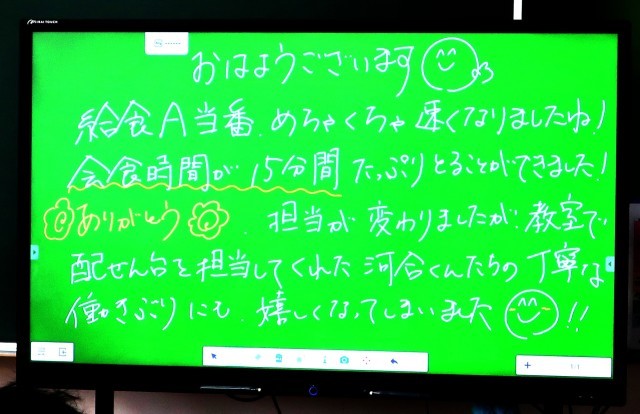 MIRAI TOUCH
おはようございます
給食A当番、めちゃくちゃ速くなりましたね!
会食時間が15分間たっぷりとることができました!
ありがとう、担当が変わりましたが、教室で
配ぜん台を担当してくれた河合くんたちの丁寧な
働きぶりにも、嬉しくなってしまいました!!